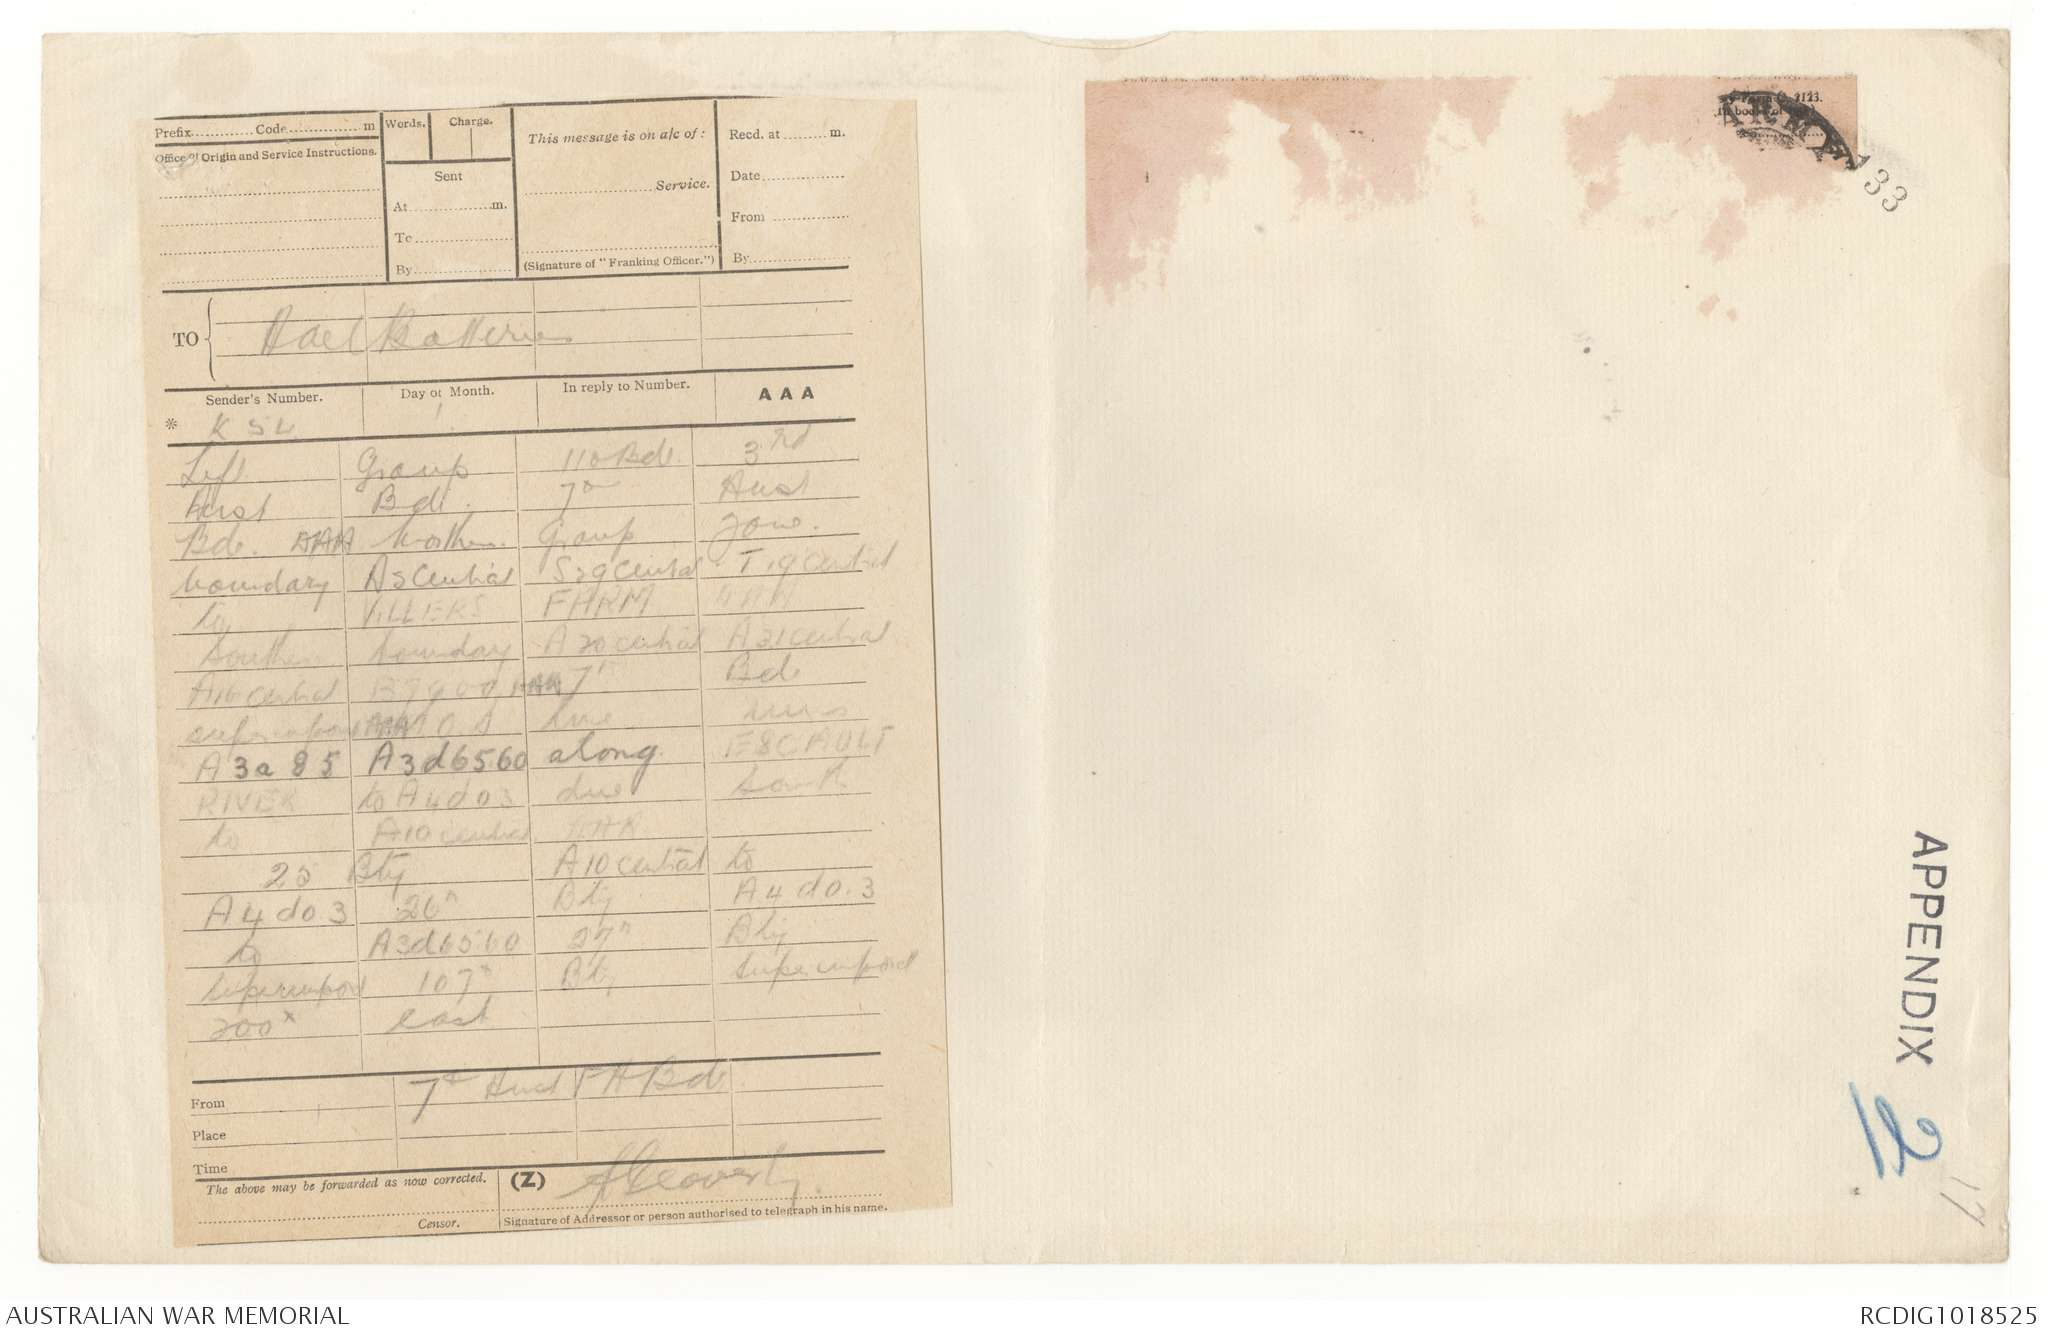 Prefix............Code..................m
Words. Charge.
This message is on a/c of :
Recd. at.........m.
Office of Origin and Service Instructions.
Sent
Service.
Date
At................m.
From
To
By
(Signature of "Franking Officer.")
By
TO
Batteries
Sender's Number. Day of Month. In reply to Number. AAA
* K 52 1
Left Group 110 Bde. 3rd
Aust Bde. 7th Aust
Bde. AAA Northern Group Zone.
boundary A5 central S29 central T.19 central
to VILLERS FARM AAA
Southern boundary A20 central A21 central
A16 central AAA 7th Bde
line runs
A 3a 85 A3d6560 along ESCAULT
RIVER to A4d03 due South
to A10 central AAA
25 Bty A10 central to
A4 d0.3 26th Bty A4 d0.3
to A3d6560 27th Bty
superimposed 107th Bty superimposed
200x east
From 7th Aust FA Bde
Place
Time
The above may be forwarded as now corrected. (Z)
Censor. Signature of Addressor or person authorised to telegraph in his name.
ARMY
133
APPENDIX
12
17
AUSTRALIAN WAR MEMORIAL
RCDIG1018525